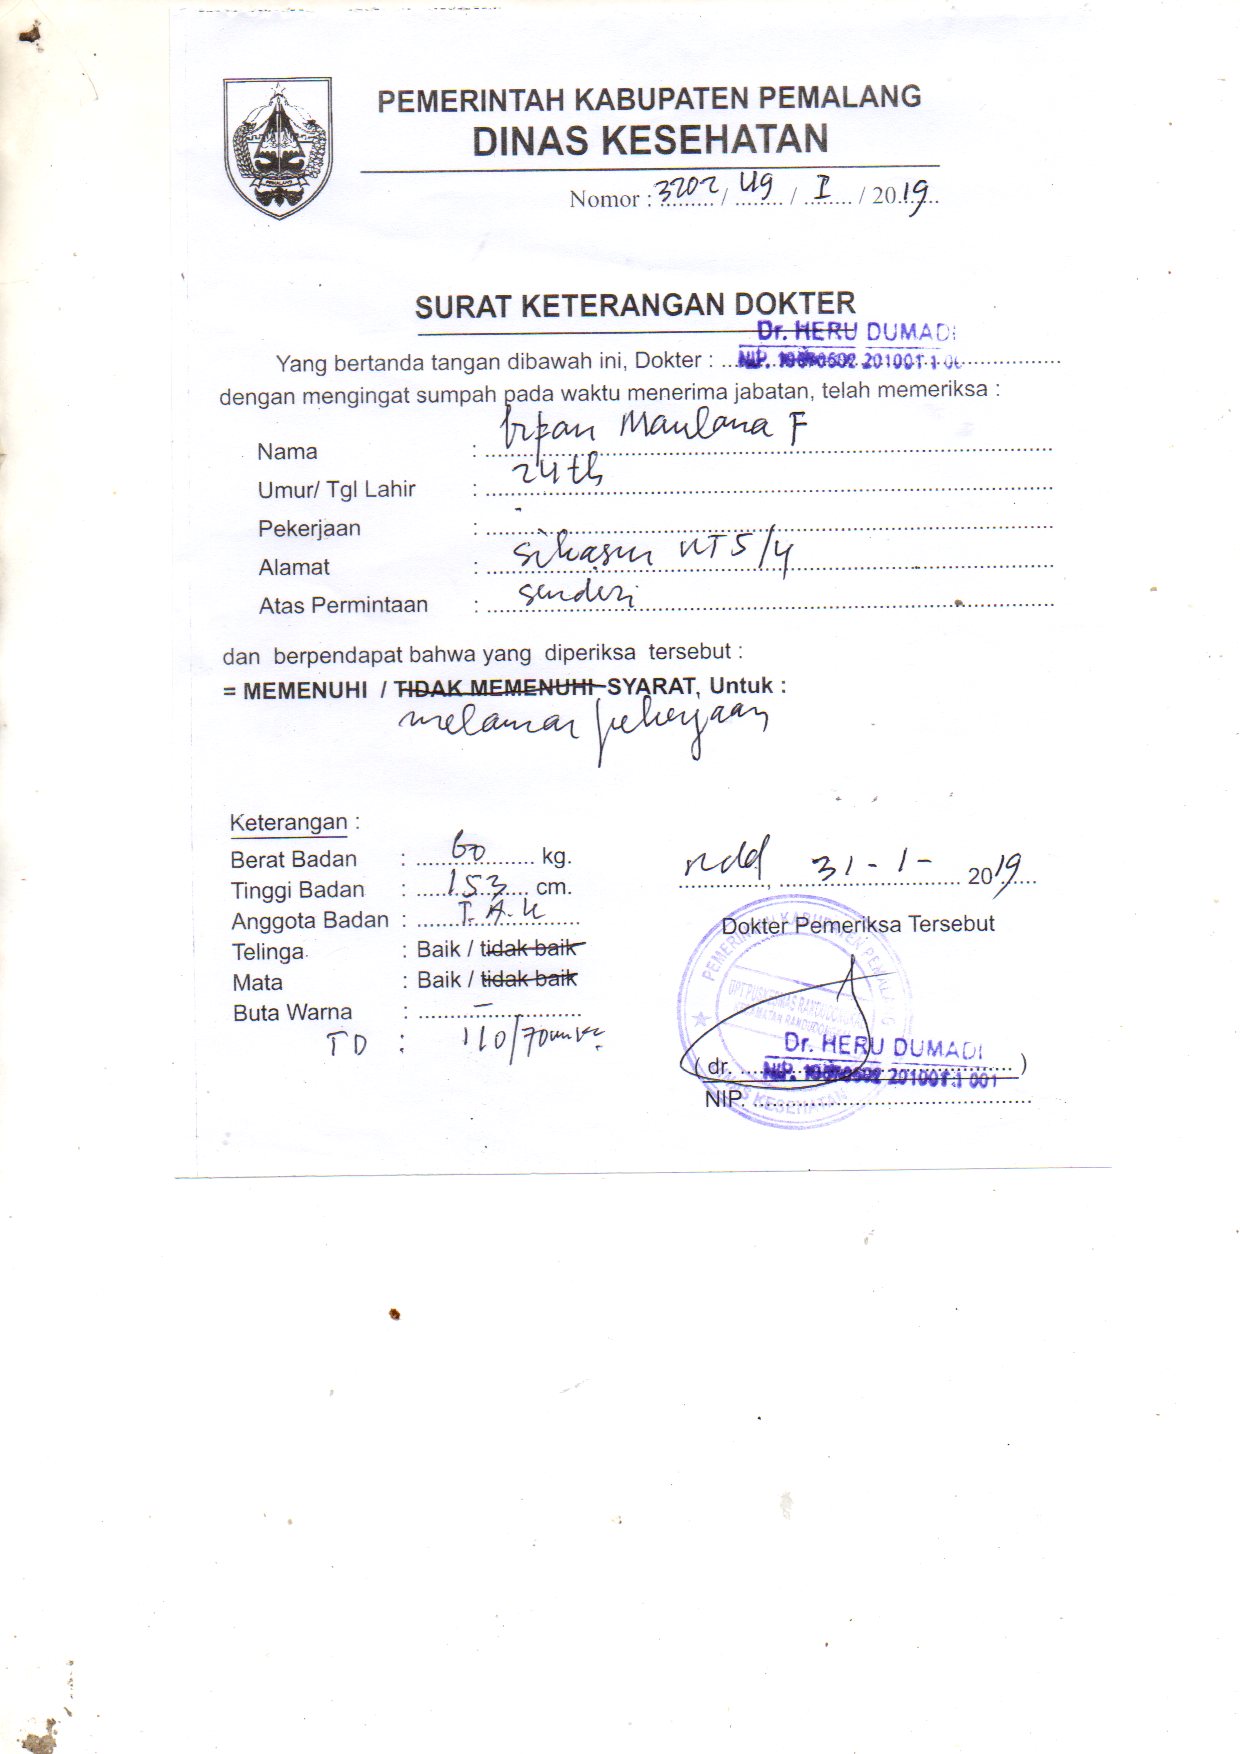 PEMERINTAH KABUPATEN PEMALANG
DINAS KESEHATAN
PEMALANG
Nomor : 3202 / Ug / I / 2019
SURAT KETERANGAN DOKTER
Dr. HERU DUMADI
Yang bertanda tangan dibawah ini, Dokter : NIP. 201001 1
dengan mengingat sumpah pada waktu menerima jabatan, telah memeriksa :
Nama : Irfan Maulana F
Umur/ Tgl Lahir : 24 th
Pekerjaan : -
Alamat : Sikasur RT 5/4
Atas Permintaan : sendiri
dan berpendapat bahwa yang diperiksa tersebut :
= MEMENUHI / TIDAK MEMENUHI SYARAT, Untuk :
melamar pekerjaan
Keterangan :
Berat Badan : 60 kg.
Tinggi Badan : 153 cm.
Anggota Badan : T.A.K
Telinga : Baik / tidak baik
Mata : Baik / tidak baik
Buta Warna : -
TD : 110/70
Rdd, 31 - 1 - 2019
Dokter Pemeriksa Tersebut
PEMERINTAH KABUPATEN PEMALANG
UPT PUSKESMAS RANDUDONGKAL
KECAMATAN RANDUDONGKAL
DINAS KESEHATAN
Dr. HERU DUMADI
( dr. )
NIP. 201001 1 001
NIP.